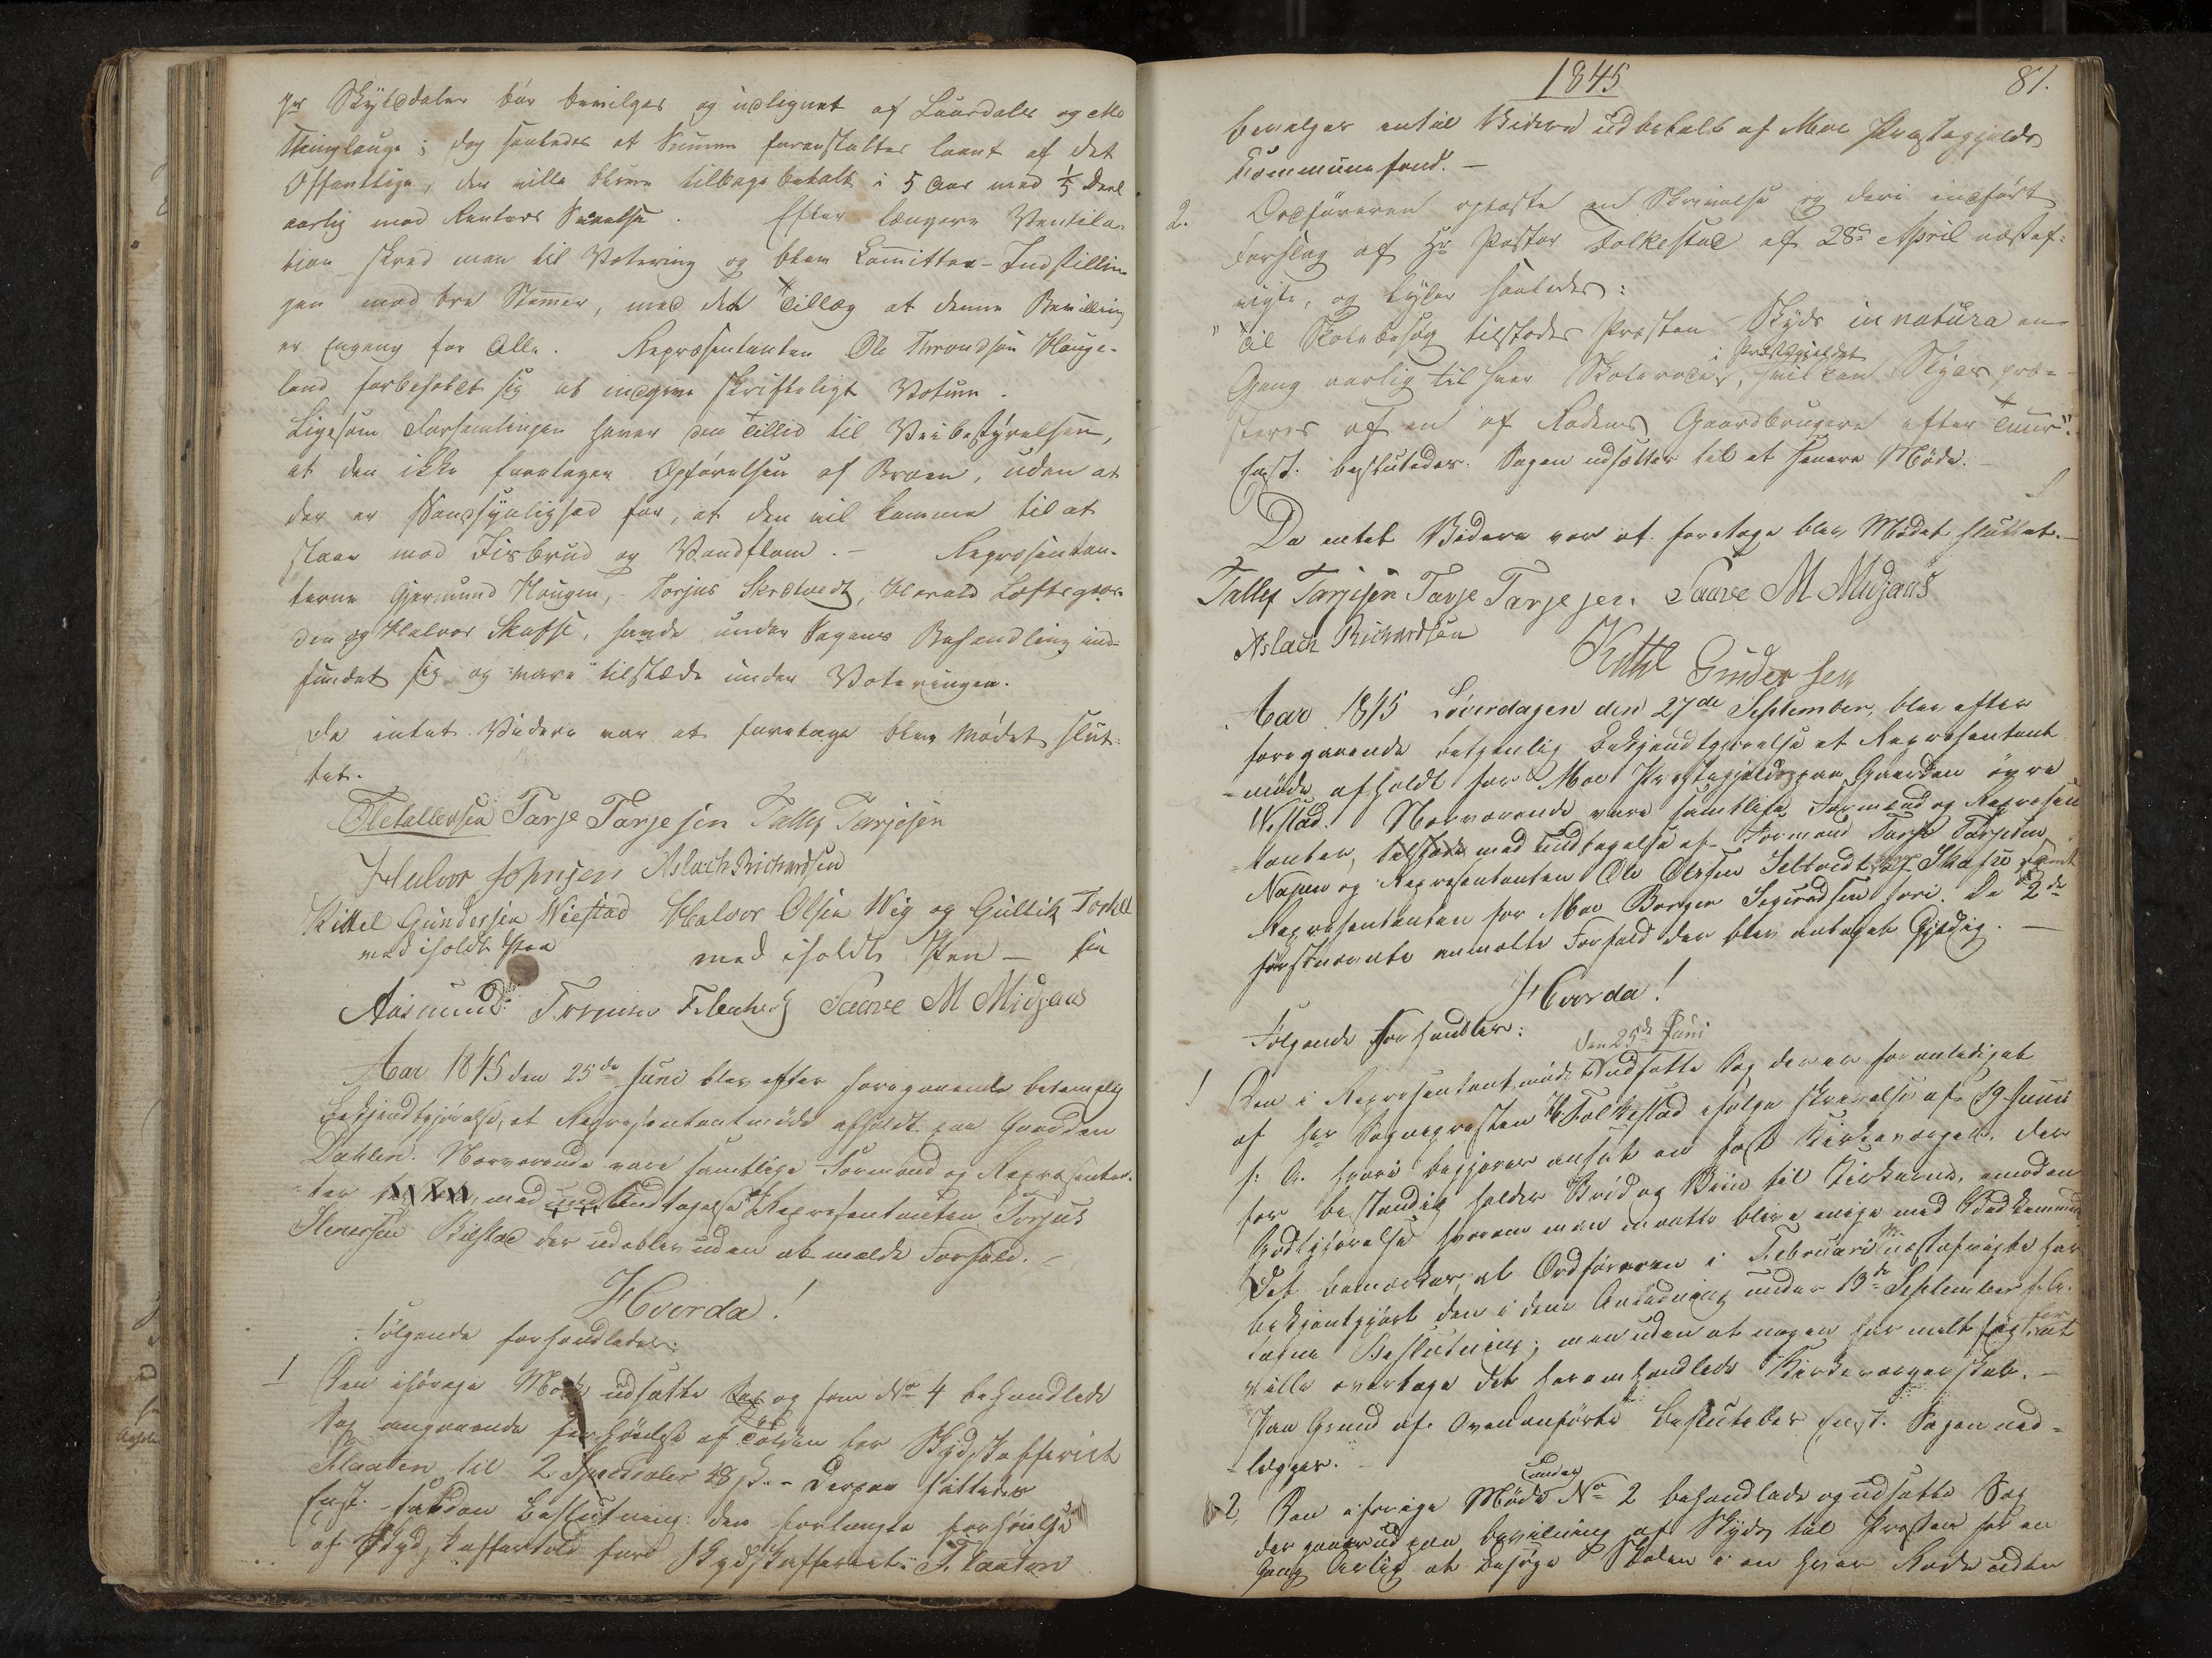 pr Skytsdaler bør bevilges og udlignet af Laurdals og Mo
Thinglauge; dog saaledes at Summen foranstaltes laant af det
Offentlige, der ville blive tilbagebetalt i 5 Aar med 1/5 Deel
aarlig med Renters Svarelse. Efter længere Ventila-
tion skred man til Votering og blev Committee-Indstillin
gen med tre Stemer, med det Tillæg at denne Bevilling
er engang for Alle. Repræsentanten Ole Throndsen Hauge-
land forbeholdt sig at indgive skrifteligt Votum.
Ligesom Forsamlingen haver den Tillid til Veibestyrelsen,
at den ikke foretager Opførelsen af Broen, uden at
der er Sandsynlighed for, at den vil komme til at
staae mod Iisbrud og Vandflom. — Repræsentan-
terne Gjermund Haugen, Torjus Skrædvedt, Harald Loftsgaar-
den og Halvor Skafse, havde under Sagens Behandling ind-
fundet sig og vare tilstæde under Voteringen.
Da intet Videre var at foretage blev Mødet slut-
tet.
Ole Tallevsen Tarje Tarjesen Tallef Tarjesen
Halvor Johnsen Aslach Richardsen
Kittel Gundersen Wiestad Halvor Olsen Vig og Gullik Torkel
med iholdt Pen med iholdt Pen — sen
Aasmund Saave M Midjaas
Aar 1845 den 25de Juni blev efter foregaaende betimelig
Bekjendtgjørelse, et Repræsentantmøde afholdt paa Gaarden
Dahlen. Nærværende vare samtlige Formænd og Repræsentan-
ter med Undtagelse af Repræsentanten Torjus
Stenersen Bilstad der udeblev uden at melde Forfald. —
Hvorda!
Følgende forhandledes:
1 Den i forrige Møde udsatte og som No 4 behandlede
Sag angaaende Forhøielse af Tolden for Skydsskafferiet
Flaaten til 2 Speciedaler 48 ß. – Derpaa fattedes
Enst. saadan Beslutning: den forlangte Forhøielse
af Skydsskaffertold for Skydsskafferiet Flaaten
1845 81.
bevilges indtil Videre udbetalt af Moe Præstegjelds
Kommunefond. —
2. Ordføreren oplæste en Skrivelse og deri indført
Forslag af Hr Pastor Folkestad af 28de April næstaf-
vigte, og lyder saaledes:
"Til Skolebesøg tilstodes Præsten Skyds in natura en
i Præstegjeldet
Gang aarlig til hver Skolerode, hvilken Skyds præ-
steres af en af Rodens Gaardbrugere efter Tuur".
Enst. besluttedes. Sagen udsættes til et senere Møde. —
Da intet Videre var at foretage blev Mødet sluttet. —
Tallef Tarjesen Tarje Tarjesen Saave M Midjaas
Aslach Richardsen
Kittel Gundersen
Aar 1845 Løverdagen den 27de September, blev efter
foregaaende betimelig Bekjendtgjørelse et Repræsentant
-møde afholdt for Moe Præstegjeld paa Gaarden øvre
Vistad. Nærværende vare samtlige Formænd og Repræsen
tanter, med Undtagelse af Formand Tarje Tarjesen
Næsen og Repræsentanten Ole Olsen Seltvedt af Skafse samt
Repræsentanten for Moe Borger Sigurdsen Hovi. De 2de
førstnævnte anmeldte Forfald der blev antaget Gyldig. —
Hvorda!
Følgende forhandles:
den 25de Juni
1 Den i Repræsentantmøde udsatte Sag der er foranlediget
af Hr Sognepræsten H Folkestad ifølge Skrivelse af 19 Junii
f. A. hvori begjæres ansat en fast Kirkeværger, der
for bestandig holder Brød og Viin til Kirkerne, imod en
Godtgjørelse hvorom man maatte blive enige med Vedkommende
Det bemærkes, at Ordføreren i Februari Mr næstafvigte har
bekjentgjort den i den Anledning under 13de September f. A.
tagne Beslutning; men uden at nogen har meldt sig for at
ville overtage det heromhandlede Kirkeværgerskab. —
Paa Grund af Ovenanførte besluttedes Enst. Sagen ned-
-lægges. —
2, Den i forrige Møde under No 2 behandlede og udsatte Sag
der gaaer ud paa bevilning af Skyds til Præsten for en
Gang Aarlig at besøge Skolen i en hver Rode uden